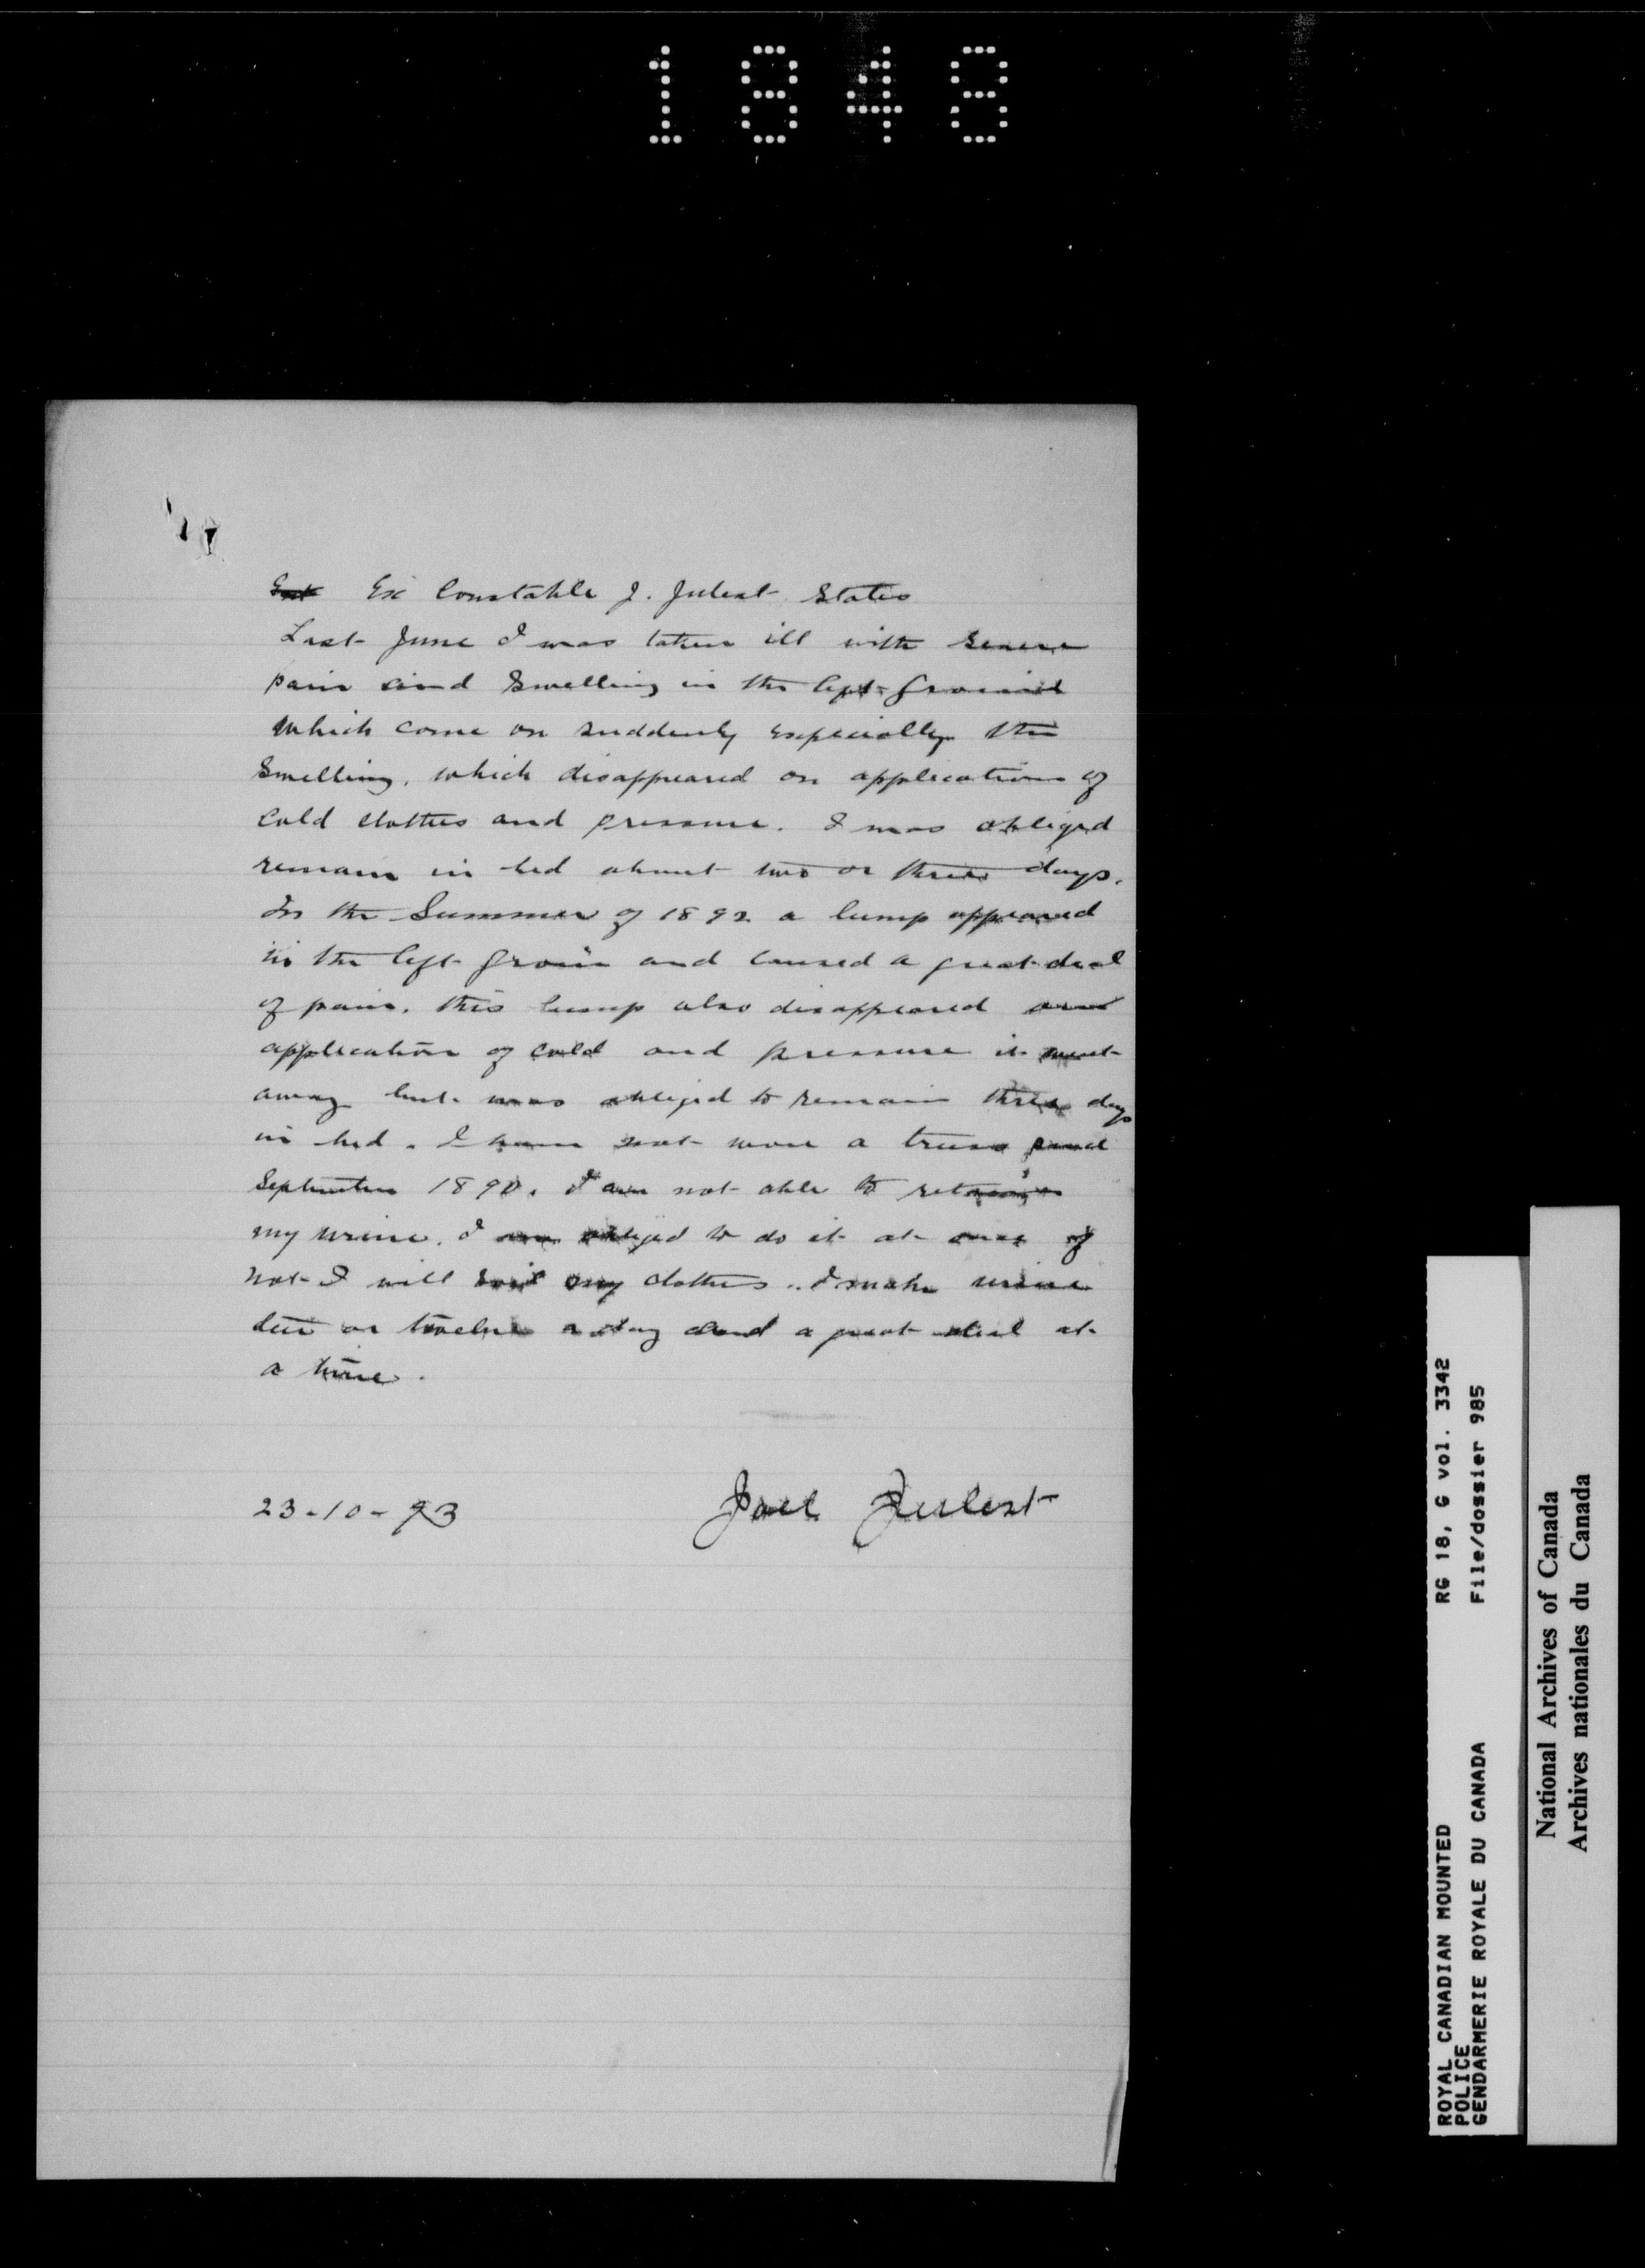 1848
Ex Constable J. Julest States
Last June I was taken ill with severe
pain and swelling in the left groin
which come on suddenly especially the
swelling, which disappeared on application of
cold clothes and pressure. I was obliged
remain in bed about two or three days.
In the Summer of 1892 a lump appeared
in the left groin and caused a great deal
of pain, this lump also disappeared
application of cold and pressure it went
away but was obliged to remain three days
in bed. I have not worn a truss
September 1890. I am not able to retain
my urine. I am obliged to do it at once if
not I will soil my clothes. I make urine
ten or twelve a day and a great deal at
a time.
23-10-93 Joel Julest
ROYAL CANADIAN MOUNTED POLICE RG 18, G vol. 3342
GENDARMERIE ROYALE DU CANADA File/dossier 985
National Archives of Canada
Archives nationales du Canada